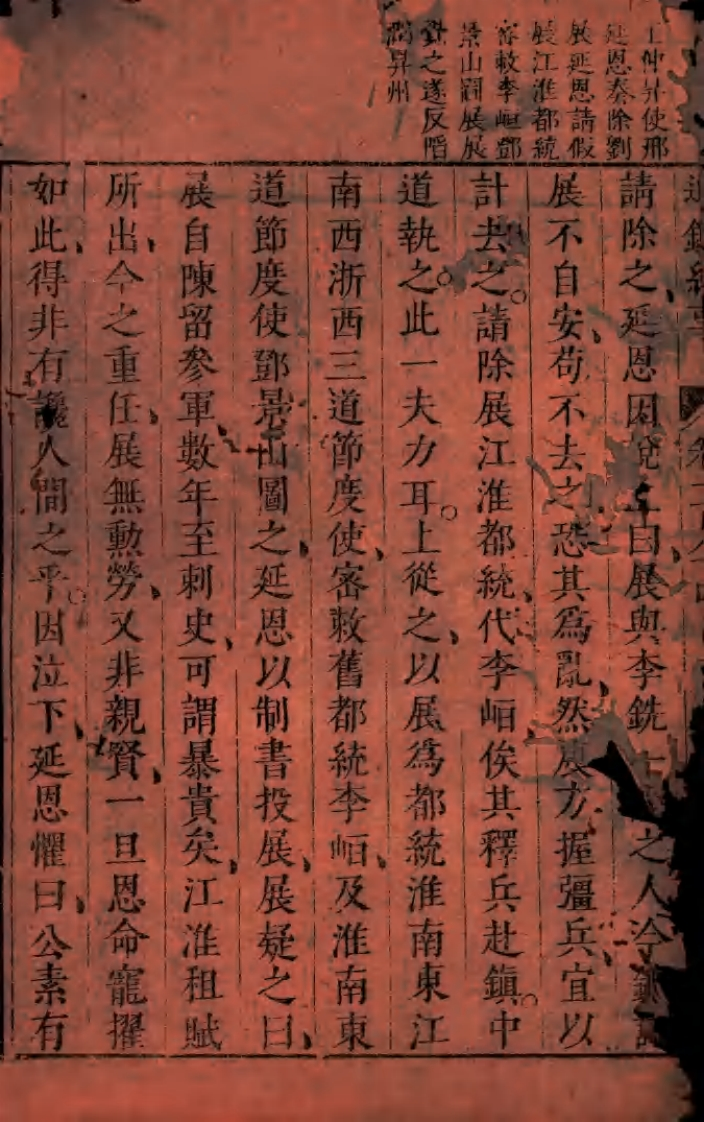 王仲昇使邢
延恩奏除劉
展延恩請假
展江淮都統
密敕李峘鄧
景山圖展展
覺之遂反陷
潤昇州
請除之延恩因說上曰展與李銑一之人今銑
展不自安苟不去之恐其為亂然展方握彊兵宜以
計去之請除展江淮都統代李峘俟其釋兵赴鎮中
道執之此一夫力耳上從之以展為都統淮南東江
南西浙西三道節度使密敕舊都統李峘及淮南東
道節度使鄧景山圖之延恩以制書投展展疑之曰
展自陳留參軍數年至刺史可謂暴貴矣江淮租賦
所出今之重任展無勲勞又非親賢一旦恩命寵擢
如此得非有讒人間之乎因泣下延恩懼曰公素有